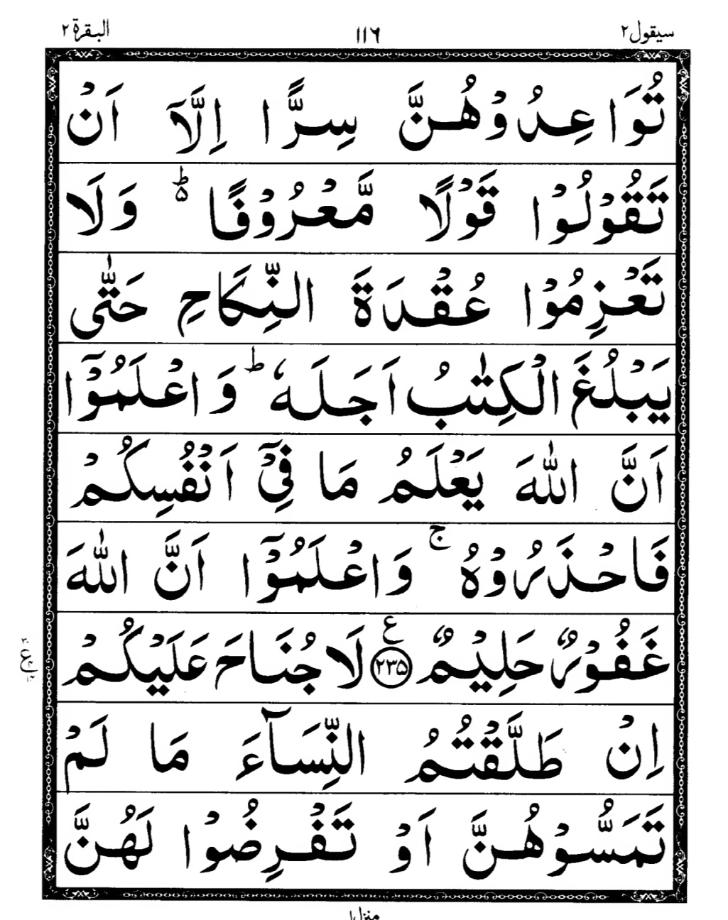 سيقول٢ ١١٦ البقرة ٢
تُوَاعِدُوْهُنَّ سِرًّا اِلَّاۤ اَنْ
تَقُوْلُوْا قَوْلًا مَّعْرُوْفًا ۬ؕ وَلَا
تَعْزِمُوْا عُقْدَةَ النِّكَاحِ حَتّٰى
يَبْلُغَ الْكِتٰبُ اَجَلَهٗ ؕ وَاعْلَمُوْۤا
اَنَّ اللّٰهَ يَعْلَمُ مَا فِيْۤ اَنْفُسِكُمْ
فَاحْذَرُوْهُ ۚ وَاعْلَمُوْۤا اَنَّ اللّٰهَ
غَفُوْرٌ حَلِيْمٌ ﴿٢٣٥﴾ ع لَا جُنَاحَ عَلَيْكُمْ
اِنْ طَلَّقْتُمُ النِّسَآءَ مَا لَمْ
تَمَسُّوْهُنَّ اَوْ تَفْرِضُوْا لَهُنَّ
منزل١